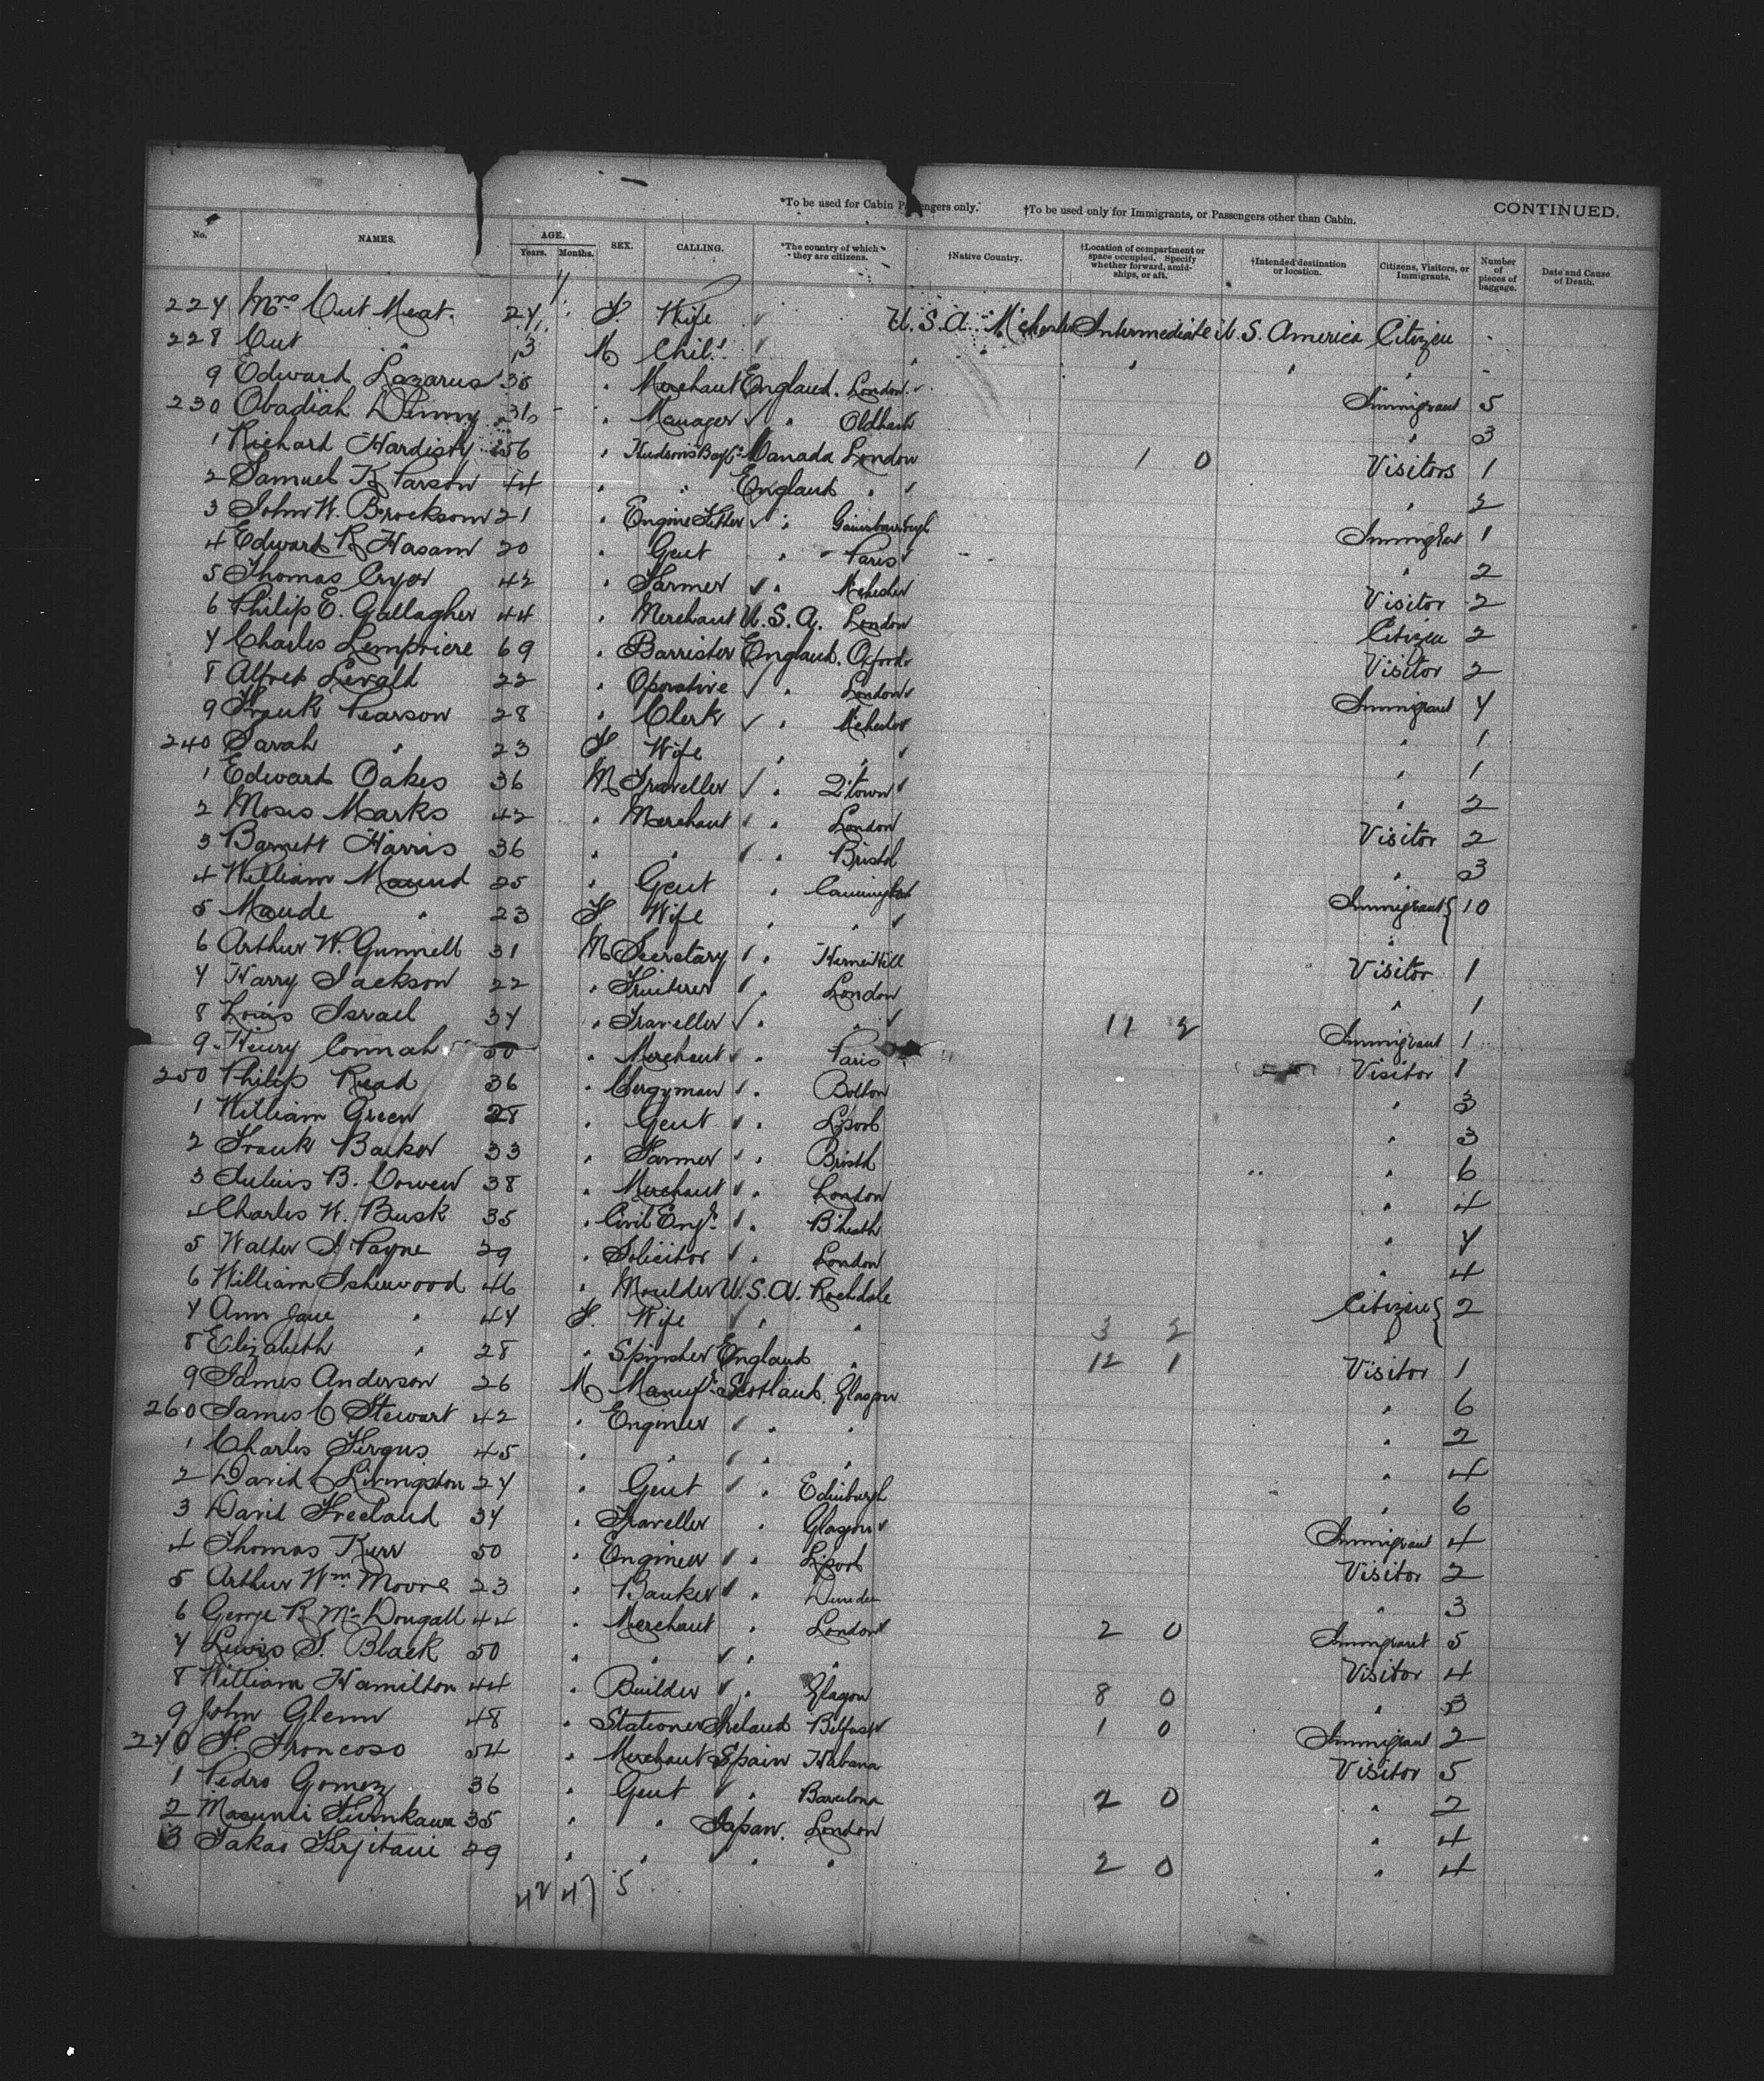 *To be used for Cabin Passengers only. †To be used only for Immigrants, or Passengers other than Cabin. CONTINUED.
No. NAMES. AGE. Years. Months. SEX. CALLING. *The country of which they are citizens. †Native Country. †Location of compartment or space occupied. Specify whether forward, amidships, or aft. †Intended destination or location. Citizens, Visitors, or Immigrants. Number of pieces of baggage. Date and Cause of Death.
227 Mrs 27 F. Wife U.S.A. Intermediate U.S. America Citizen
228 " 3 M Child " " "
9 Edward Lazarus 38 " Merchant England. London. Immigrant 5
230 Obadiah " Manager " Oldham " 3
1 Richard Hardisty 56 " Hudsons Bay Co Canada London 1 0 Visitors 1
2 Samuel K Parson 44 " " England " " 2
3 John W. Brocksom 21 " Engine Fitter " Gainsbourough Immigrant 1
4 Edward R Hasam 20 " Gent " Paris " 2
5 Thomas Cryer 42 " Farmer " Mchester Visitor 2
6 Philip E. Gallagher 44 " Merchant U.S.A. London Citizen 2
7 Charles Lempriere 69 " Barrister England. Oxford Visitor 2
8 Alfred 22 " Operative " London Immigrant 7
9 Frank Pearson 28 " Clerk " Mchester " 1
240 Sarah " 23 F Wife " " " 1
1 Edward Oakes 36 M Traveller " Q'town " 2
2 Moses Marks 42 " Merchant " London Visitor 2
3 Barnett Harris 36 " " " Bristol " 3
4 William Maund 25 " Gent " Immigrant 10
5 Maude " 23 F Wife " " "
6 Arthur W. Gunnell 31 M Secretary " Herne Hill Visitor 1
7 Harry Jackson 22 " Fruiterer " London " 1
8 Louis Israel 37 " Traveller " " 11 2 Immigrant 1
9 Henry Connah 50 " Merchant " Paris Visitor 1
250 Philip Read 36 " Clergyman " Bolton " 3
1 William Green 28 " Gent " L'pool " 3
2 Frank Barker 33 " Farmer " Bristol " 6
3 Julius B. Cowen 38 " Merchant " London " 4
4 Charles W. Busk 35 " Civil Engr " B'heath " 7
5 Walter J. Payne 29 " Solicitor " London " 4
6 William Isherwood 46 " Moulder U.S.A. Rochdale Citizen 2
7 Ann Jane " 47 F. Wife " " 3 2 "
8 Elizabeth " 28 " Spinster England " 12 1 Visitor 1
9 James Anderson 26 M Manufr Scotland. Glasgow " 6
260 James C Stewart 42 " Engineer " " " 2
1 Charles Fergus 45 " " " " " 4
2 David Livingston 27 " Gent " Edinburgh " 6
3 David Freeland 37 " Traveller " Glasgow Immigrant 4
4 Thomas Kerr 50 " Engineer " L'pool Visitor 2
5 Arthur Wm Moore 23 " Banker " Dundee " 3
6 George R McDougall 44 " Merchant " London 2 0 Immigrant 5
7 Lewis S. Black 50 " " " " Visitor 4
8 William Hamilton 44 " Builder " Glagow 8 0 " 3
9 John Glenn 48 " Stationer Ireland Belfast 1 0 Immigrant 2
270 F. Troncoso 54 " Merchant Spain Habana Visitor 5
1 Pedro Gomez 36 " Gent " Barcelona 2 0 " 2
2 35 " " Japan. London " 4
3 Takao 29 " " " " 2 0 " 4
42 47 5